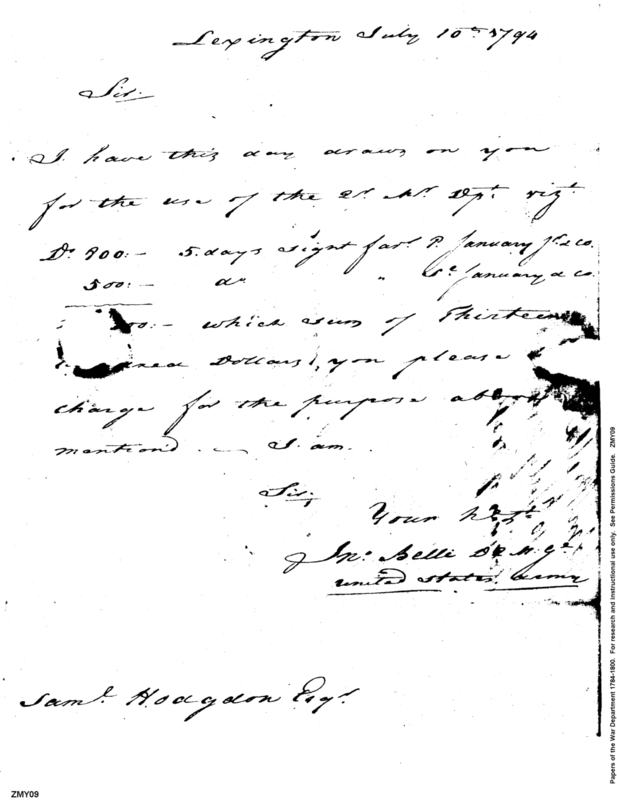 Lexington July 10th 1794
Sir.
I have this day drawn on you
for the use of the Qr. Mr. Dpt. vizt.
Ds 800:- 5. days sight favr. P. January Jr. & co.
500:- do " Dr. January & co.
00:- which sum of Thirteen
Dollars, you please
charge for the purpose above
mentiond. — I am.
Sir.
Your
Jno. Belli D Q M. Gl
united States. army
Saml. Hodgdon Esqr.
Papers of the War Department 1784-1800. For research and instructional use only. See Permissions Guide. ZMY09
ZMY09